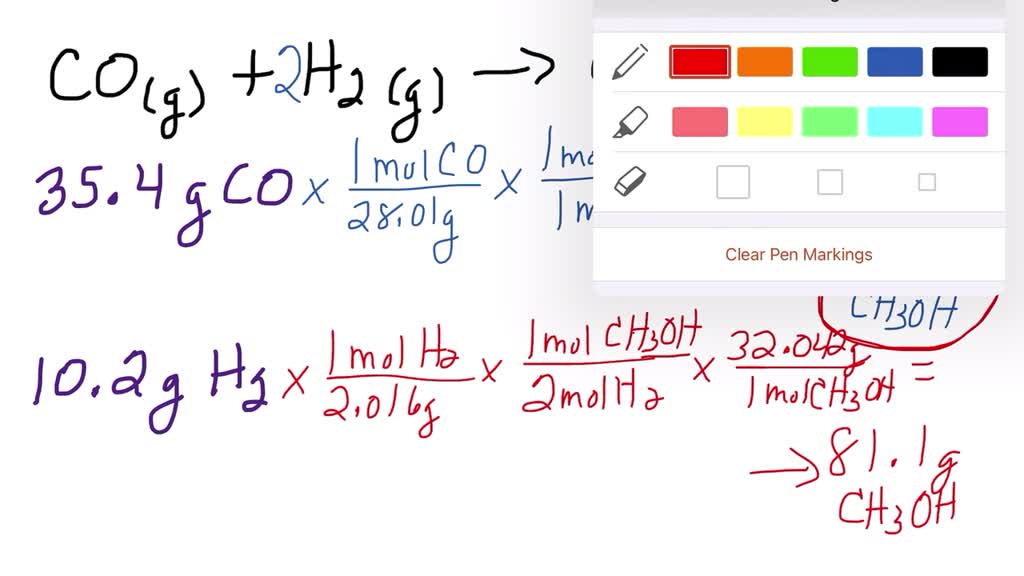 CO(g) + 2H2(g) →
35.4 g CO × 1 mol CO / 28.01g × 1 m / 1 m
Clear Pen Markings
CH3OH
10.2g H2 × 1 mol H2 / 2.016g × 1 mol CH3OH / 2 mol H2 × 32.042g / 1 mol CH3OH =
→ 81.1g
CH3OH